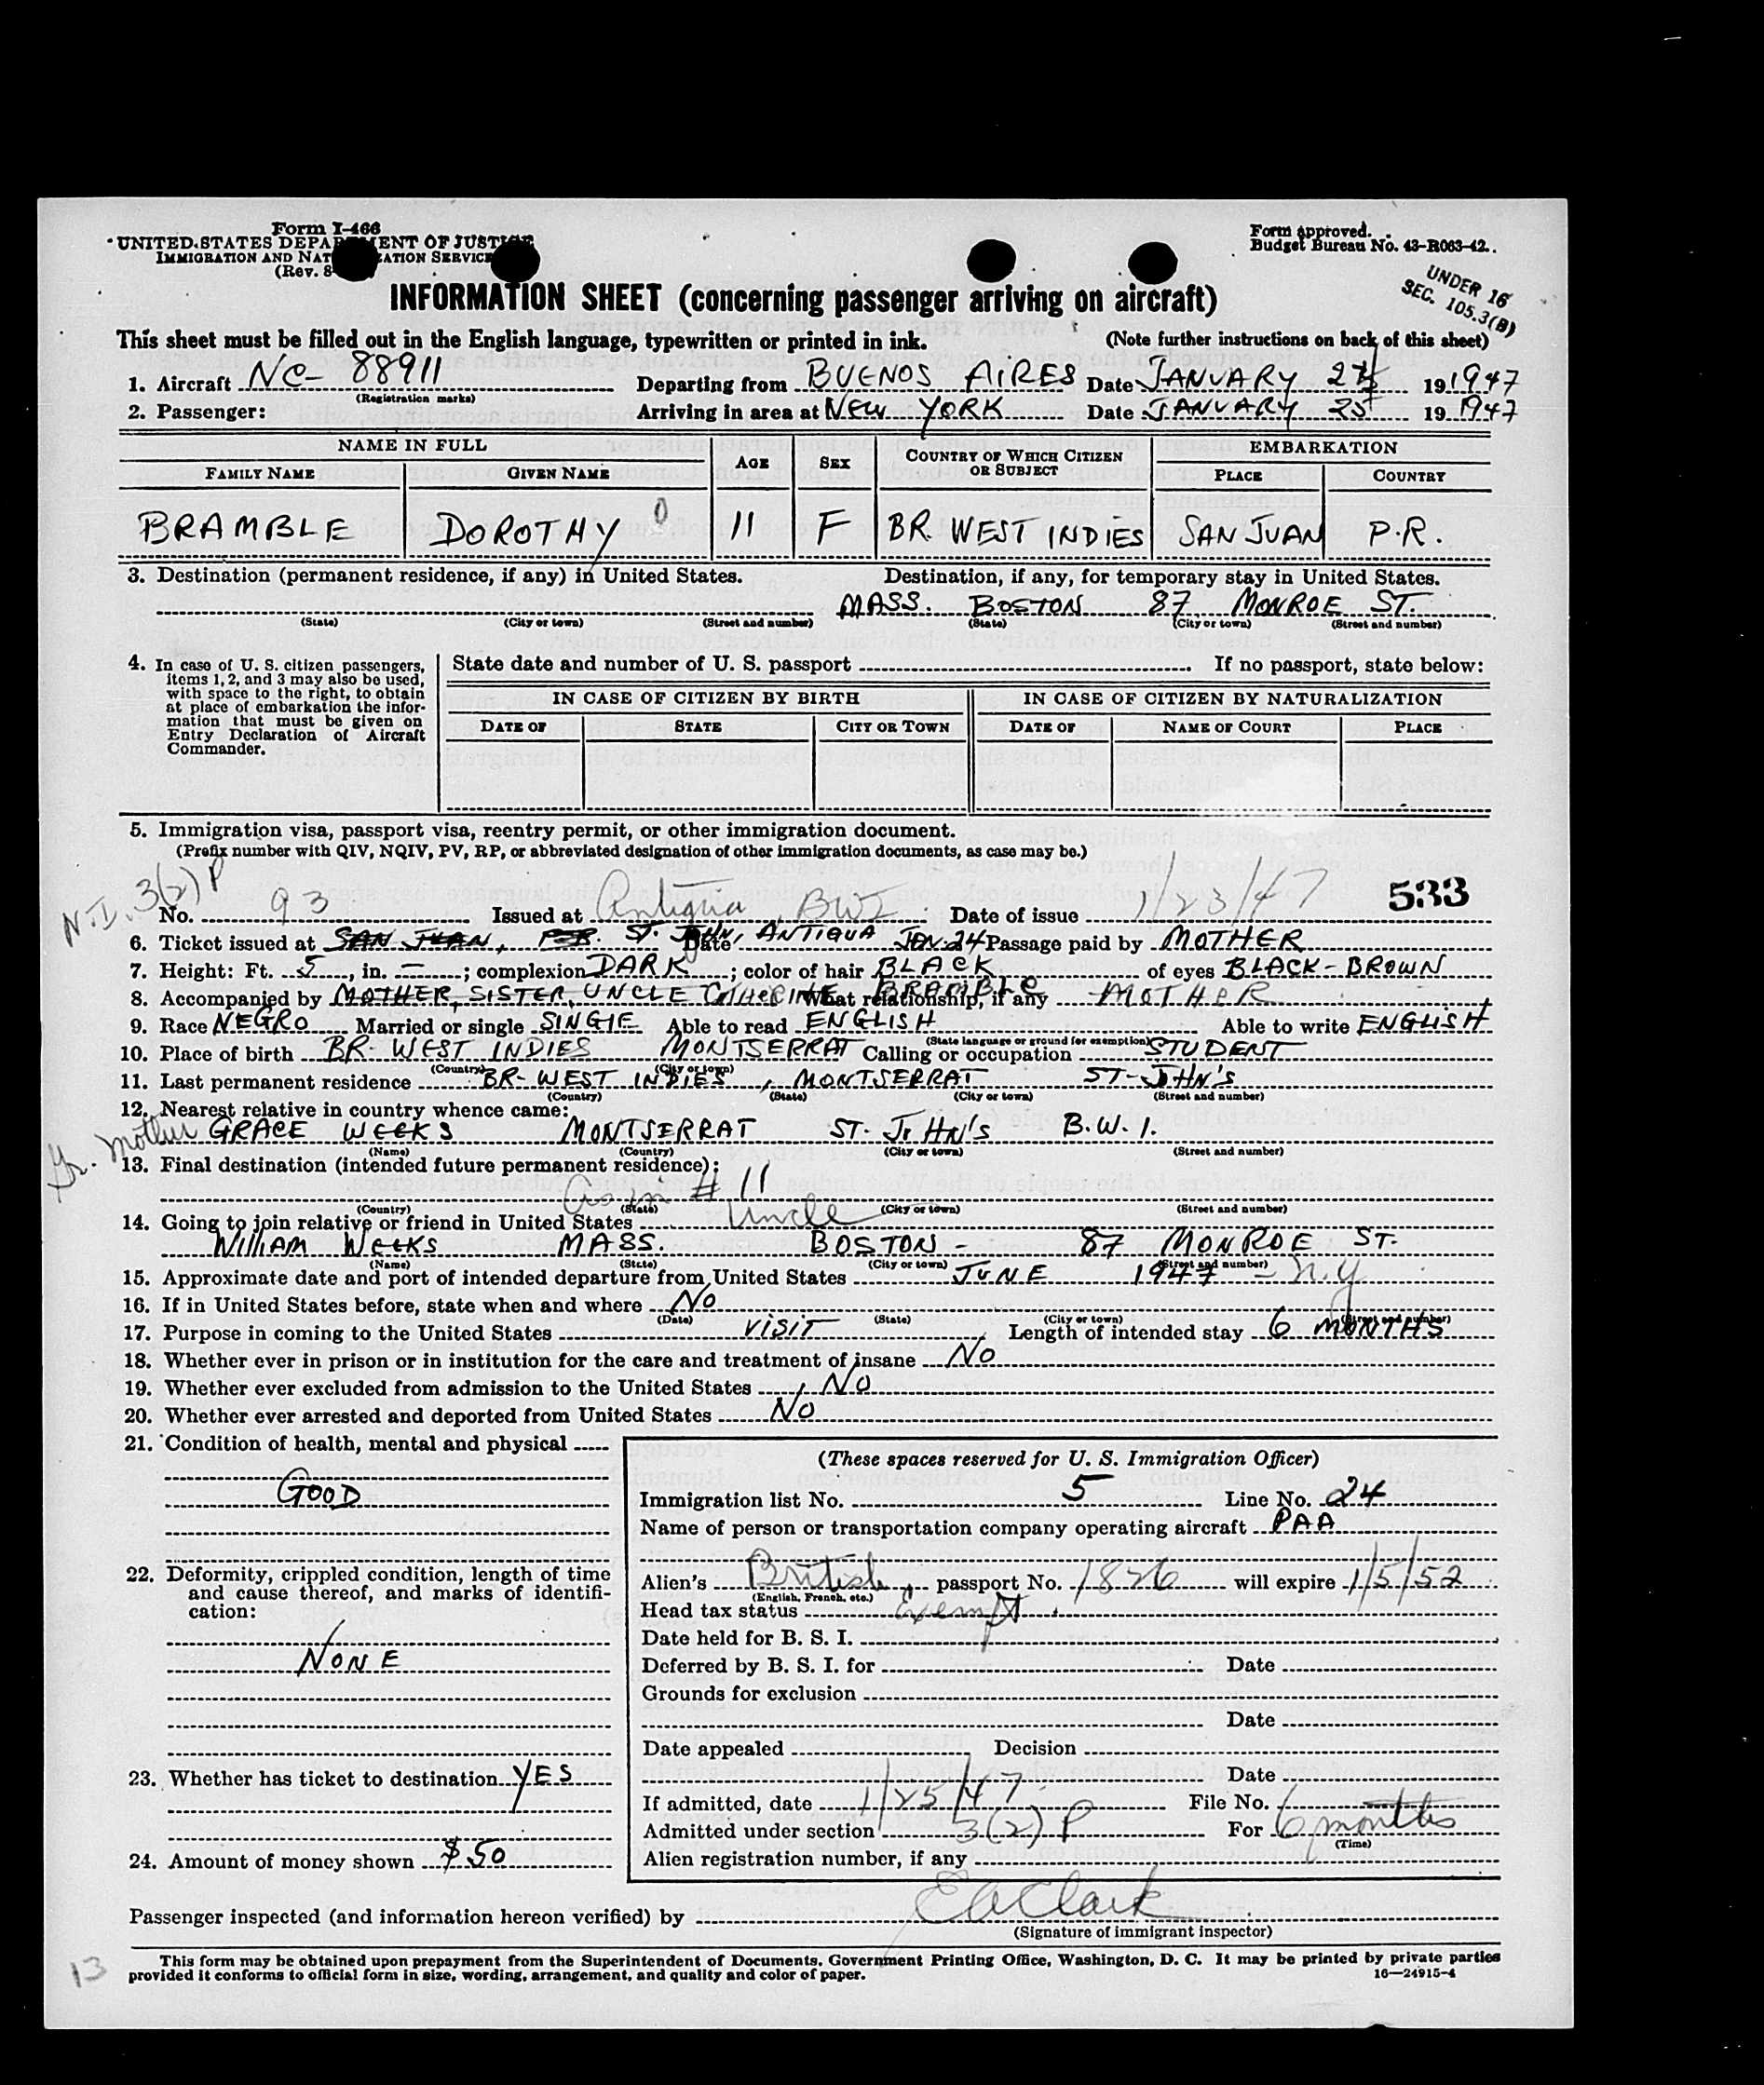 Form I-466
UNITED STATES DEPARTMENT OF JUSTICE
IMMIGRATION AND NAT ATION SERVICE
(Rev. 8
Form approved.
Budget Bureau No. 43-R063-42.
UNDER 16
SEC. 105.3(B)
INFORMATION SHEET (concerning passenger arriving on aircraft)
This sheet must be filled out in the English language, typewritten or printed in ink. (Note further instructions on back of this sheet)
1. Aircraft NC- 88911 Departing from BUENOS AIRES Date JANUARY 24 19 1947
(Registration marks)
2. Passenger: Arriving in area at NEW YORK Date JANUARY 25 19 1947
NAME IN FULL AGE SEX COUNTRY OF WHICH CITIZEN OR SUBJECT EMBARKATION
FAMILY NAME GIVEN NAME PLACE COUNTRY
BRAMBLE DOROTHY 11 F BR. WEST INDIES SAN JUAN P.R.
3. Destination (permanent residence, if any) in United States. Destination, if any, for temporary stay in United States.
MASS. BOSTON 87 MONROE ST.
(State) (City or town) (Street and number) (State) (City or town) (Street and number)
4. In case of U. S. citizen passengers,
items 1, 2, and 3 may also be used,
with space to the right, to obtain
at place of embarkation the infor-
mation that must be given on
Entry Declaration of Aircraft
Commander.
State date and number of U. S. passport If no passport, state below:
IN CASE OF CITIZEN BY BIRTH IN CASE OF CITIZEN BY NATURALIZATION
DATE OF STATE CITY OR TOWN DATE OF NAME OF COURT PLACE
5. Immigration visa, passport visa, reentry permit, or other immigration document.
(Prefix number with QIV, NQIV, PV, RP, or abbreviated designation of other immigration documents, as case may be.)
N.I. 3(2) P
533
No. 93 Issued at Antigua, BWI Date of issue 1/23/47
6. Ticket issued at SAN JUAN, ST. JOHN, ANTIGUA Date JAN. 24 Passage paid by MOTHER
7. Height: Ft. 5, in. —; complexion DARK; color of hair BLACK of eyes BLACK-BROWN
8. Accompanied by MOTHER, SISTER, UNCLE CATHERINE BRAMBLE What relationship, if any MOTHER
9. Race NEGRO Married or single SINGLE Able to read ENGLISH Able to write ENGLISH
(State language or ground for exemption)
10. Place of birth BR. WEST INDIES MONTSERRAT Calling or occupation STUDENT
(Country) (City or town)
11. Last permanent residence BR- WEST INDIES, MONTSERRAT ST-JOHN'S
(Country) (State) (City or town) (Street and number)
12. Nearest relative in country whence came:
Gr. Mother GRACE WEEKS MONTSERRAT ST. JOHN'S B.W.I.
(Name) (Country) (City or town) (Street and number)
13. Final destination (intended future permanent residence):
as in # 11
(Country) (State) (City or town) (Street and number)
14. Going to join relative or friend in United States Uncle
WILLIAM WEEKS MASS. BOSTON - 87 MONROE ST.
(Name) (State) (City or town) (Street and number)
15. Approximate date and port of intended departure from United States JUNE 1947 - N.Y
16. If in United States before, state when and where NO
(Date) (State) (City or town) (Street and number)
17. Purpose in coming to the United States VISIT Length of intended stay 6 MONTHS
18. Whether ever in prison or in institution for the care and treatment of insane NO
19. Whether ever excluded from admission to the United States NO
20. Whether ever arrested and deported from United States NO
21. Condition of health, mental and physical
GOOD
22. Deformity, crippled condition, length of time
and cause thereof, and marks of identifi-
cation:
NONE
23. Whether has ticket to destination YES
24. Amount of money shown $50
(These spaces reserved for U. S. Immigration Officer)
Immigration list No. 5 Line No. 24
Name of person or transportation company operating aircraft PAA
Alien's British passport No. 1826 will expire 1/5/52
(English, French, etc.)
Head tax status Exempt
Date held for B. S. I.
Deferred by B. S. I. for Date
Grounds for exclusion
Date
Date appealed Decision
Date
If admitted, date 1/25/47 File No.
Admitted under section 3(2) P For 6 months
(Time)
Alien registration number, if any
Passenger inspected (and information hereon verified) by EA Clark
(Signature of immigrant inspector)
13
This form may be obtained upon prepayment from the Superintendent of Documents, Government Printing Office, Washington, D. C. It may be printed by private parties
provided it conforms to official form in size, wording, arrangement, and quality and color of paper. 16—24915-4